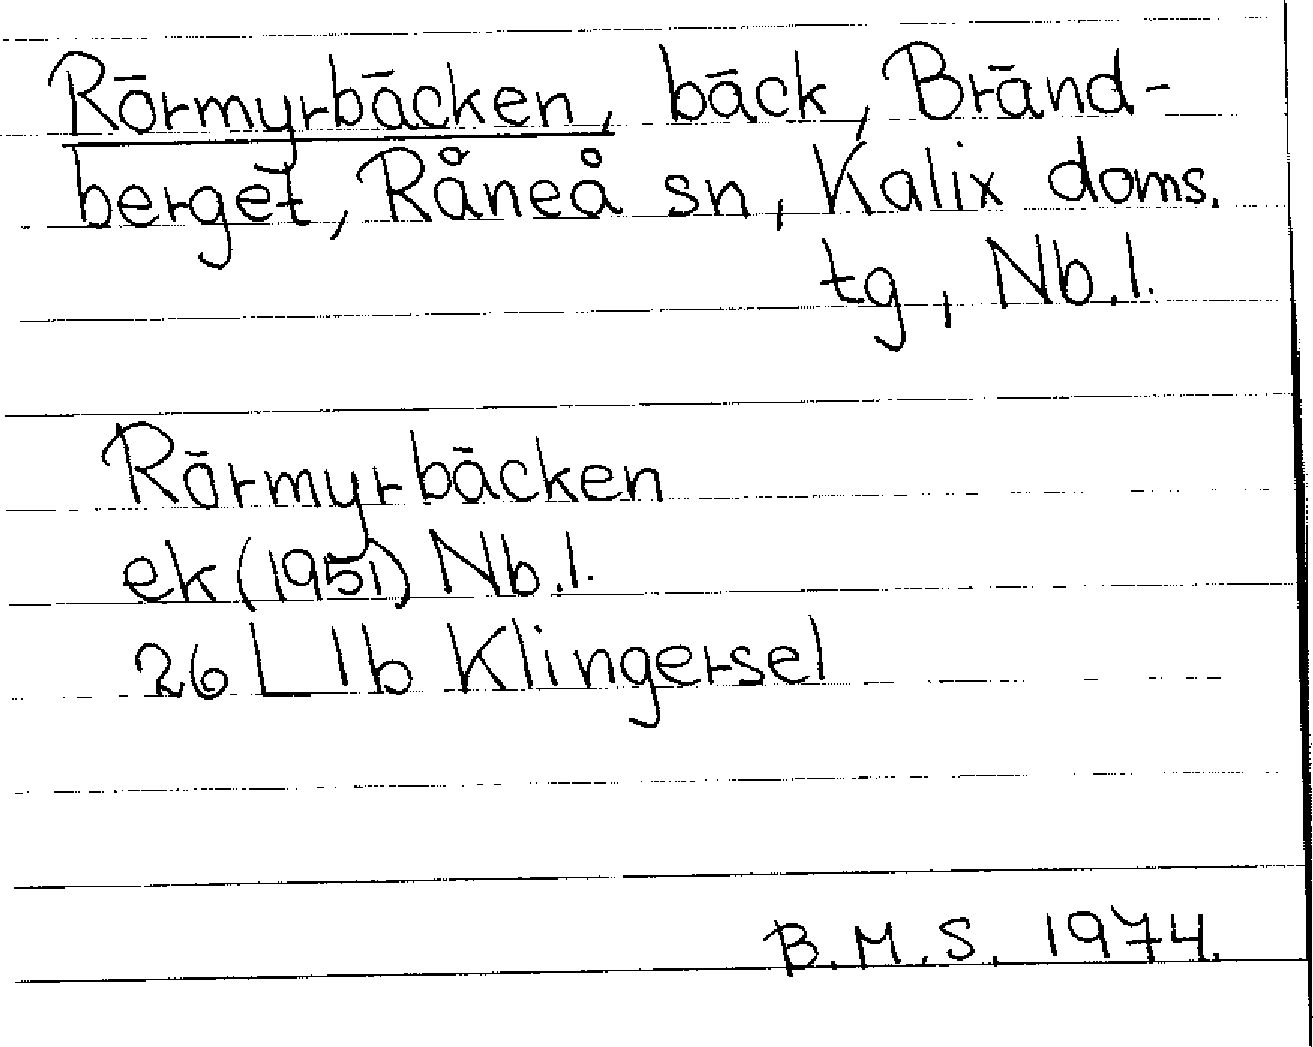 Rörmyrbäcken, bäck, Bränd-
berget, Råneå sn, Kalix doms.
tg, Nb.l.
Rörmyrbäcken
ek (1951) Nb.l.
26 L Ib Klingersel
B.M.S. 1974.